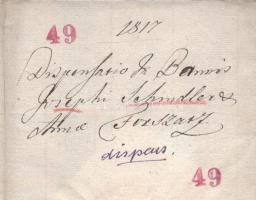 49
1817
Dispensatio in Bannis
Josephi Schindler &
Annae Forszatz
dispens.
49